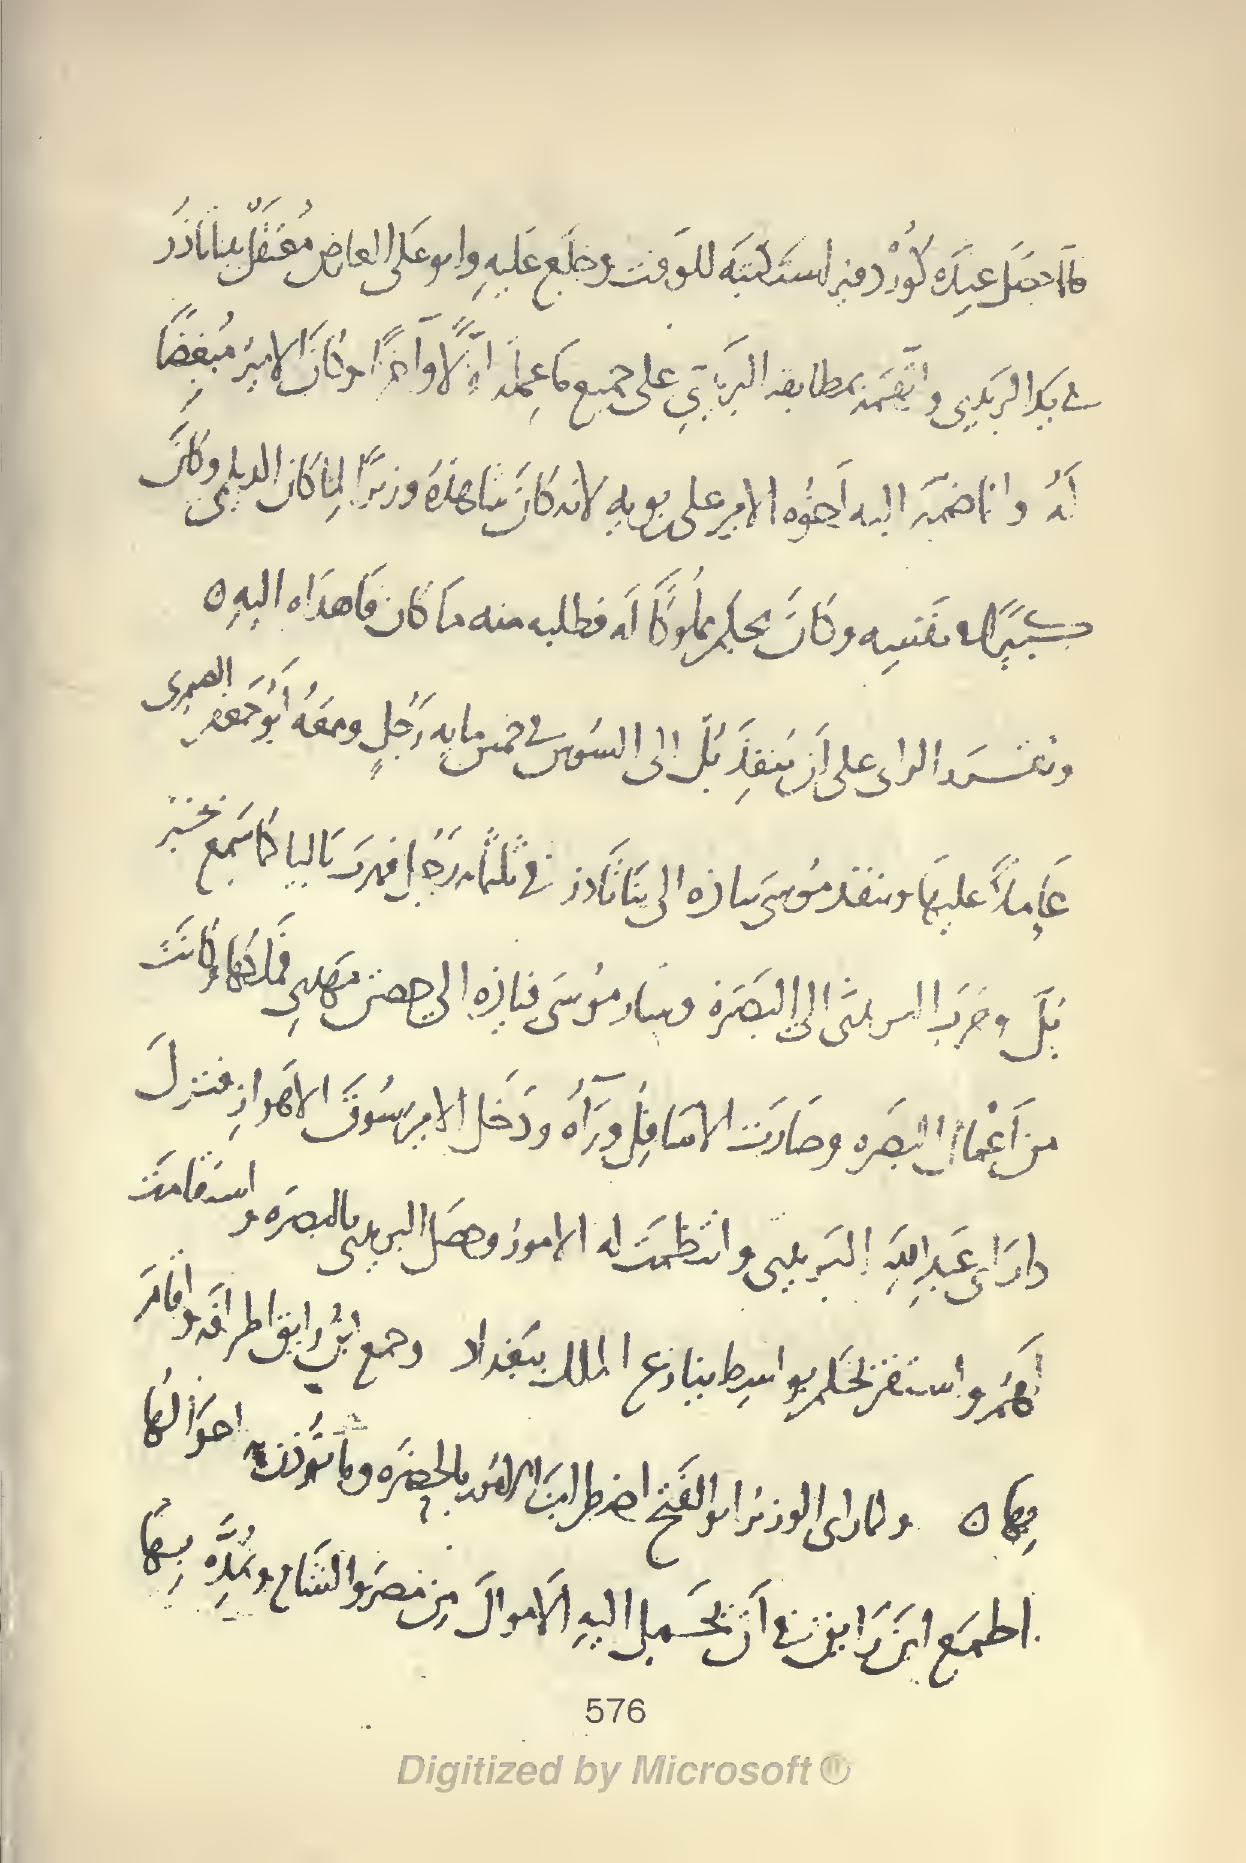 فلما حصل عنده كوردفير استكتبه للوقت وخلع عليه وابو على العارض معتقل بباناذر
في يد البريدى واتهمه بمطابقة البريدي على جميع ما عمله اولا وآخرًا وكان الامير مبغضًا
له وانما ضمه اليه اخوه الامير على بن بويه لانه كان وزيرًا لماكان الديلمى وكان
كبيرًا في نفسه وكان بجكم مملوكًا له فطلبه منه ماكان فاهداه اليه ٥
وتقرر الراى على ان ينفذ بُلّ الى السوس في خمس مايه رجل ومعه ابو جعفر الصيمرى
عاملًا عليها وينفذ موسى فياذه الى بناتاذر في ثلثمايه رجل فهرب تاليا لما سمع بخبر
بُلّ وهرب البريدى الى البصرة وسار موسى فياذه الى حصن مهدى فملكها وكانت
من اعمال البصره وصارت الاسافل ورآه ودخل الامير سوق الاهواز فنزل
دار ابى عبد الله البريدى وانتظمت له الامور وحصل البريدى بالبصره واستقامت
لهم واستقر بجكم بواسط ينازع الملك ببغداد وجمع ابن رايق اطرافه واقام
بها ٥ ولما راى الوزير ابو الفتح اضطراب الامور بالحضره وما تؤذن به احوالها
اطمع ابن رايق في ان يحمل اليه الاموال من مصر والشام ويمده بها
576
Digitized by Microsoft ®